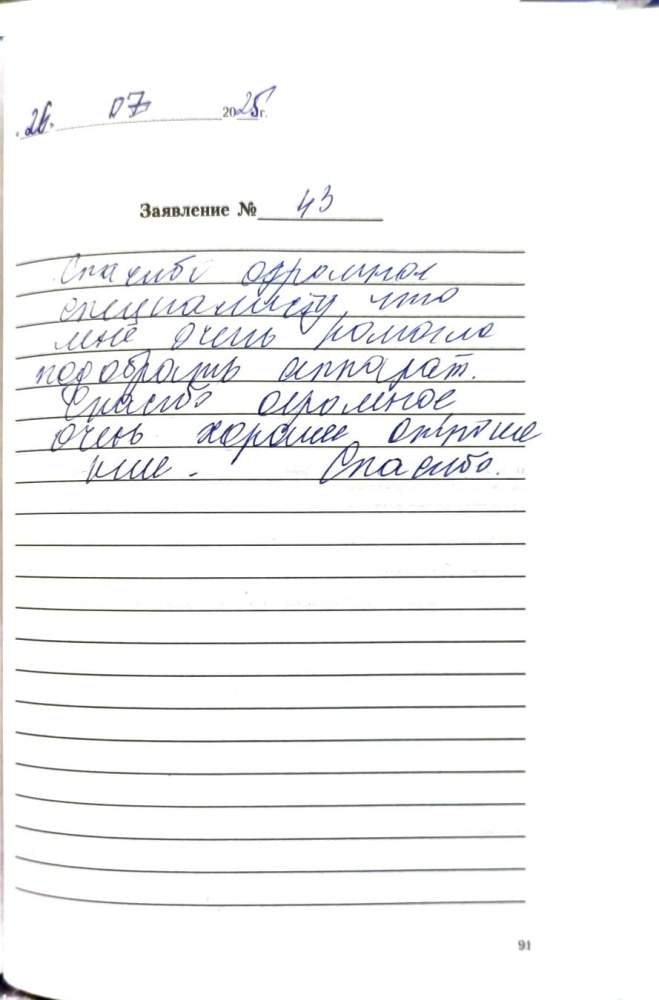 26. 07 2025г.
Заявление № 43
Спасибо огромное
специалисту что
мне очень помогла
подобрать аппарат.
Спасибо огромное,
очень хорошее отноше
ние. Спасибо.
91